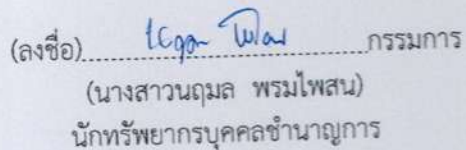 (ลงชื่อ)........................................กรรมการ
(นางสาวนฤมล พรมไพสน)
นักทรัพยากรบุคคลชำนาญการ